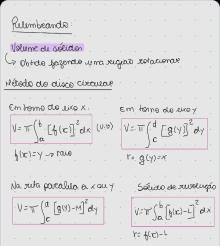 Relembrando:
Volume de sólidos
↳ Obtido fazendo uma região rotacionar
Método do disco circular
Em torno do eixo x.
V = π ∫_a^b [f(x)]² dx (u.v)
f(x) = y → raio
Em torno do eixo y
V = π ∫_c^d [g(y)]² dy
r = g(y) = x
Na reta paralela a x ou y
V = π ∫_c^d [g(y) - M]² dy
Sólido de revolução
V = π ∫_a^b [f(x) - L]² dx
r = f(x) - L